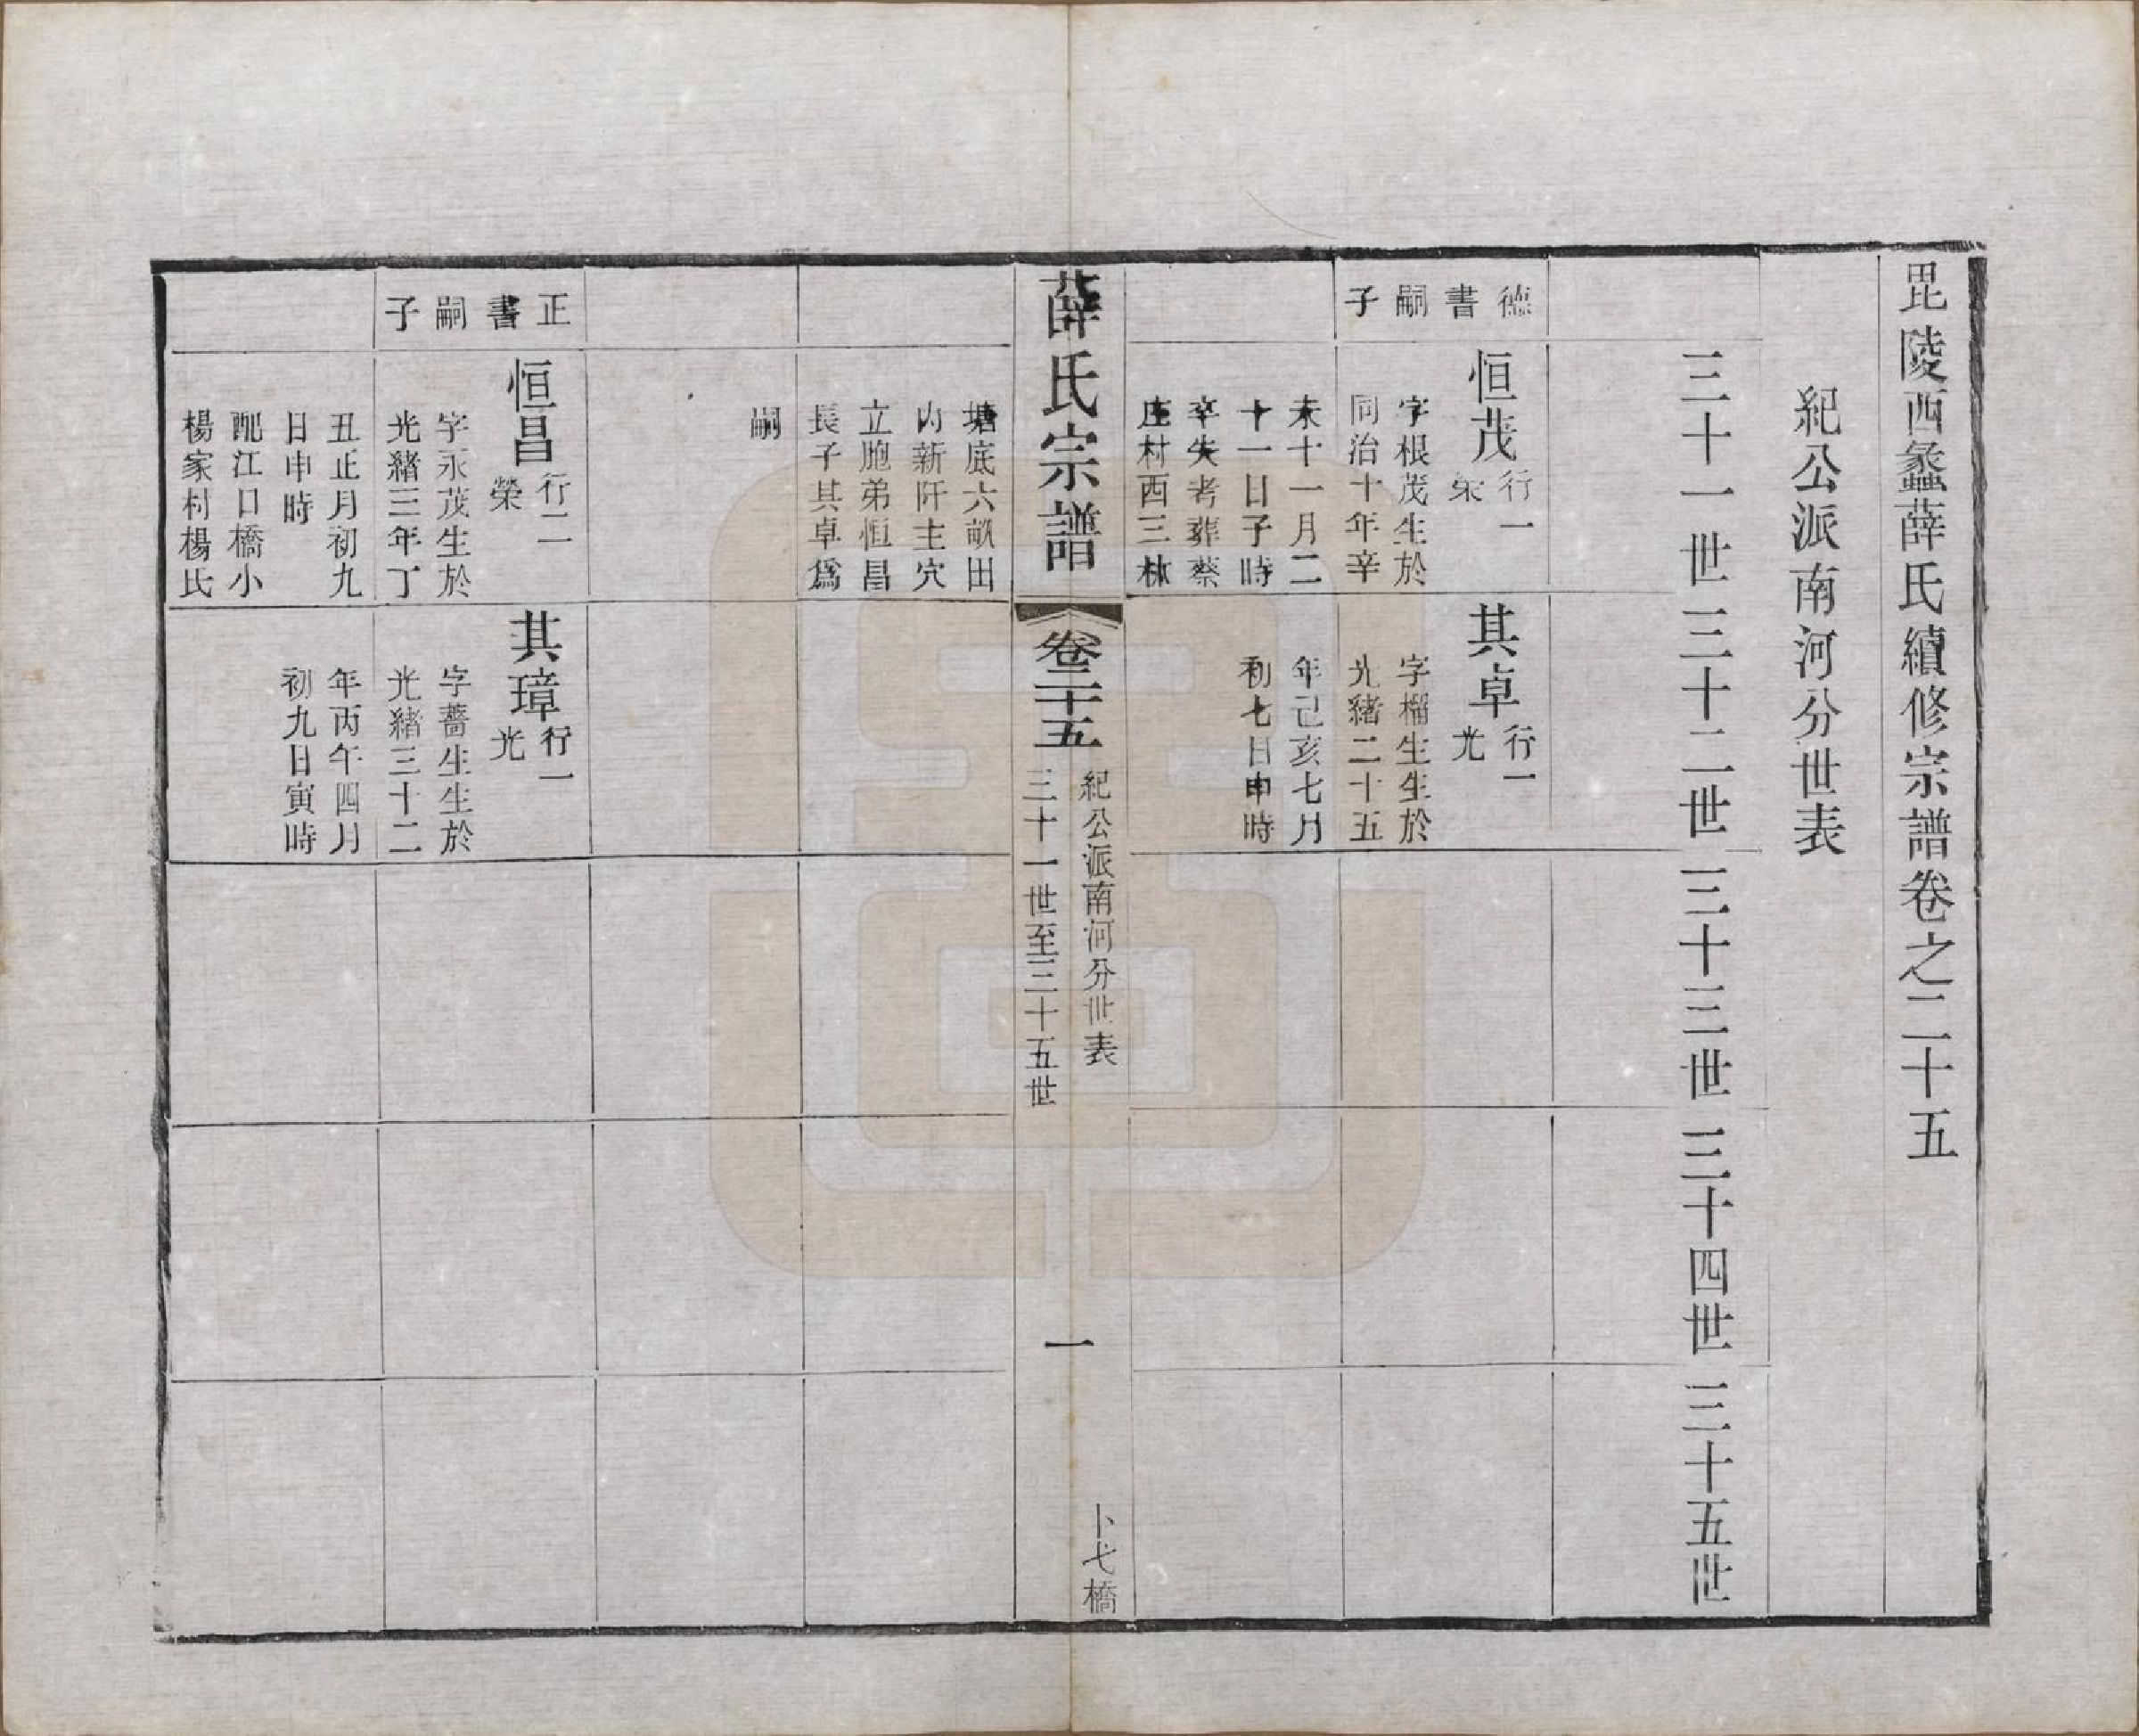 毘陵西蠡薛氏續修宗譜卷之二十五
紀公派南河分世表
三十一世
三十二世
三十三世
三十四世
三十五世
德書嗣子
恒茂
行一
榮
字根茂生於
同治十年辛
未十一月二
十一日子時
卒失考葬蔡
庄村西三林
其卓
行一
光
字榴生生於
光緒二十五
年己亥七月
初七日申時
薛氏宗譜
卷二十五
紀公派南河分世表
三十一世至三十五世
一
卜弋橋
塘底六畝田
内新阡主穴
立胞弟恒昌
長子其卓爲
嗣
正書嗣子
恒昌
行二
榮
字永茂生於
光緒三年丁
丑正月初九
日申時
配江口橋小
楊家村楊氏
其璋
行一
光
字薔生生於
光緒三十二
年丙午四月
初九日寅時